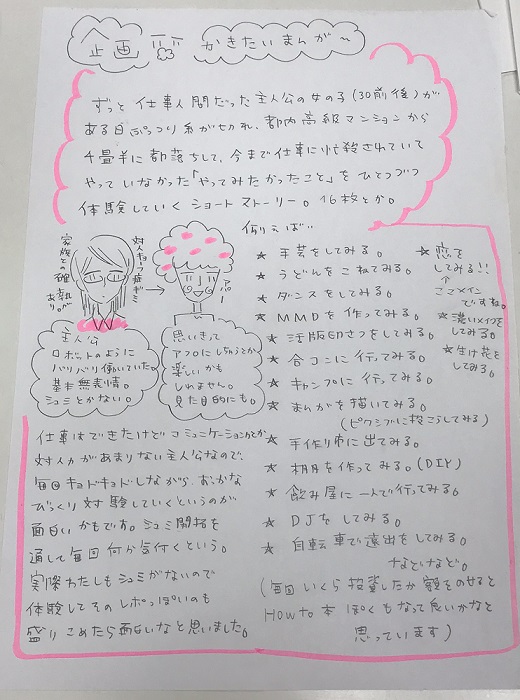 企画 かきたいまんが〜
ずっと仕事人間だった主人公の女の子(30前後)が
ある日ぷっつり糸がきれ、都内高級マンションから
4畳半に都落ちして、今まで仕事に忙殺されていて
やっていなかった「やってみたかったこと」をひとつづつ
体験していくショートストーリー。16枚とか。
家族との確執あり。
対人恐怖症ギミ
アハー
主人公
ロボットのように
バリバリ働いていた。
基本無表情。
シュミとかない。
思いきって
アフロにしちゃうとか
楽しいかも
しれません。
見た目的にも。
仕事はできたけどコミュニケーションとか
対人力があまりない主人公なので、
毎回キョドキョドしながら、おっかな
びっくり対験していくというのが
面白いかもです。シュミ開拓を
通して毎回何か気付くという。
実際わたしもシュミがないので
体験してそのレポっぽいのも
盛りこめたら面白いなと思いました。
例えば…
★ 手芸をしてみる。
★ うどんをこねてみる。
★ ダンスをしてみる。
★ MMDを作ってみる。
★ 活版印さつをしてみる。
★ 合コンに行ってみる。
★ キャンプに行てみる。
★ まんがを描いてみる。
(ピクシブに投こうしてみる)
★ 手作り市に出てみる。
★ 棚を作ってみる。(DIY)
★ 飲み屋に一人で行ってみる。
★ DJをしてみる。
★ 自転車で遠出をしてみる。
などなど。
★ 恋を
してみる!!
↑
ここメイン
ですね。
★ 濃いメイクを
してみる。
★ 生け花を
してみる。
(毎回いくら投資したか額をのせると
How to 本ぽくもなって良いかなと
思っています)